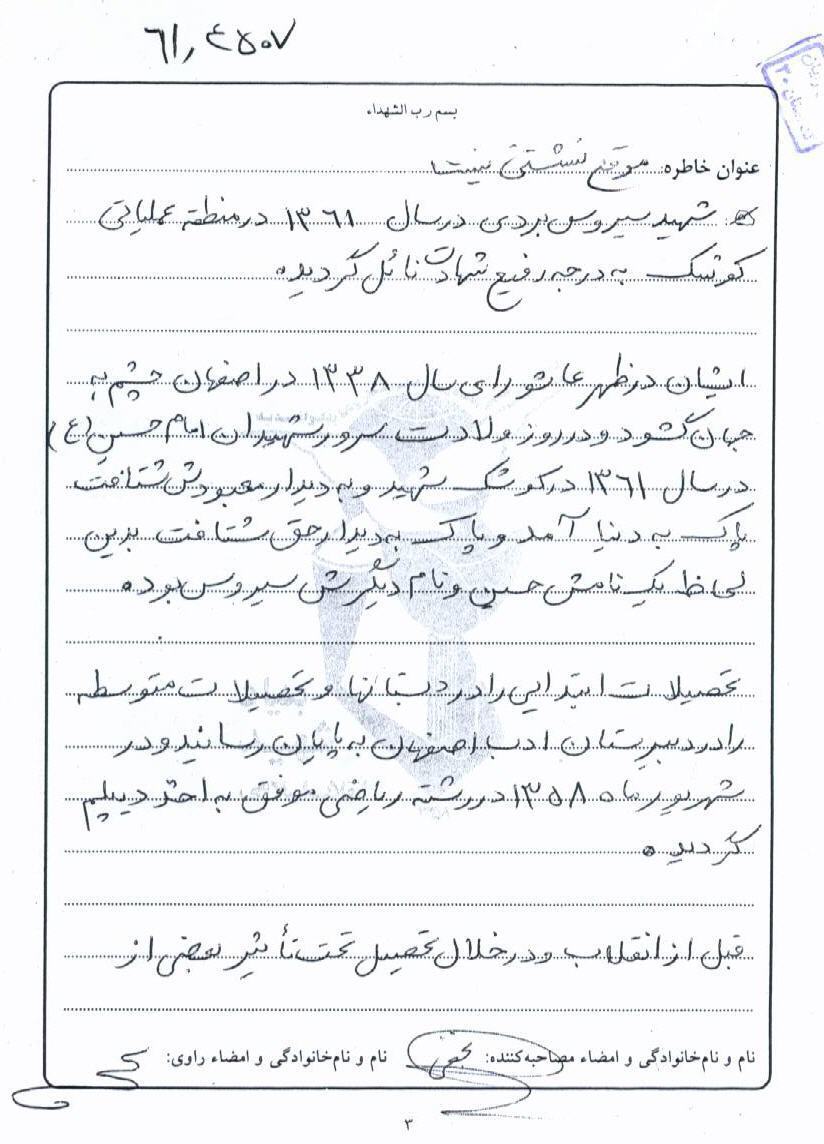 ۶۱٫۴۵۰۷
بسم رب الشهداء
عنوان خاطره: موقع نشستن نیست
شهید سیروس بردی در سال ۱۳۶۱ در منطقه عملیاتی
کوشک به درجه رفیع شهادت نائل گردید.
ایشان در ظهر عاشورای سال ۱۳۳۸ در اصفهان چشم به
جهان گشود و در روز ولادت سرور شهیدان امام حسین (ع)
در سال ۱۳۶۱ در کوشک شهید و به دیدار معبودش شتافت
پاک به دنیا آمد و پاک به دیدار حق شتافت بدین
لحاظ یک نامش حسین و نام دیگرش سیروس بوده
تحصیلات ابتدایی را در دبستانها و تحصیلات متوسطه
را در دبیرستان ادب اصفهان به پایان رسانید و در
شهریور ماه ۱۳۵۸ در رشته ریاضی موفق به اخذ دیپلم
گردید.
قبل از انقلاب و در خلال تحصیل تحت تأثیر بعضی از
نام و نام‌خانوادگی و امضاء مصاحبه‌کننده: نام و نام‌خانوادگی و امضاء راوی:
۳